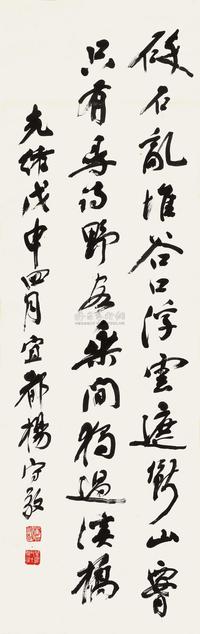 碎石亂堆谷口浮雲遮斷山腰
只有尋詩野客乘間獨過溪橋
光緒戊申四月宜都楊守敬